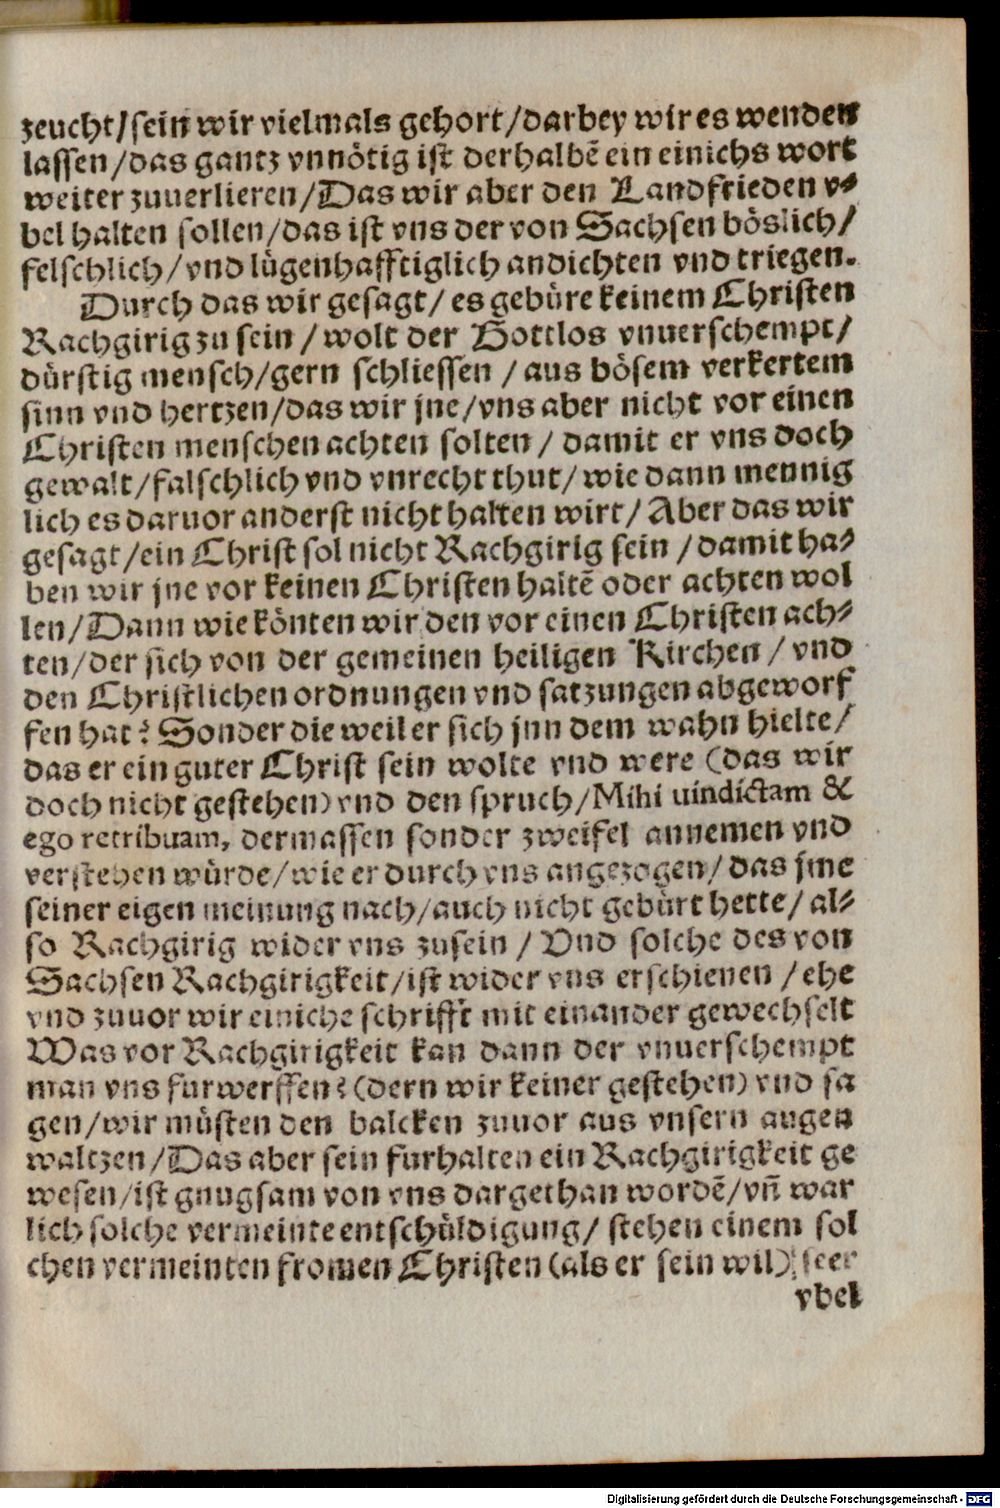 zeucht/sein wir vielmals gehort/darbey wir es wenden
lassen/das gantz vnnötig ist derhalbē ein einichs wort
weiter zuuerlieren/Das wir aber den Landfrieden v⸗
bel halten sollen/das ist vns der von Sachsen böslich/
felschlich/vnd lügenhafftiglich andichten vnd triegen.
Durch das wir gesagt/es gebüre keinem Christen
Rachgirig zu sein/wolt der Gottlos vnuerschempt/
dürstig mensch/gern schliessen/aus bösem verkertem
sinn vnd hertzen/das wir jne/vns aber nicht vor einen
Christen menschen achten solten/damit er vns doch
gewalt/falschlich vnd vnrecht thut/wie dann mennig
lich es daruor anderst nicht halten wirt/Aber das wir
gesagt/ein Christ sol nicht Rachgirig sein/damit ha⸗
ben wir jne vor keinen Christen haltē oder achten wol
len/Dann wie könten wir den vor einen Christen ach⸗
ten/der sich von der gemeinen heiligen Kirchen/vnd
den Christlichen ordnungen vnd satzungen abgeworf
fen hat? Sonder die weil er sich jnn dem wahn hielte/
das er ein guter Christ sein wolte vnd were (das wir
doch nicht gestehen) vnd den spruch/Mihi uindictam &
ego retribuam, dermassen sonder zweifel annemen vnd
verstehen würde/wie er durch vns angezogen/das jme
seiner eigen meinung nach/auch nicht gebürt hette/al⸗
so Rachgirig wider vns zusein/Vnd solche des von
Sachsen Rachgirigkeit/ist wider vns erschienen/ehe
vnd zuuor wir einiche schrifft mit einander gewechselt
Was vor Rachgirigkeit kan dann der vnuerschempt
man vns furwerffen? (dern wir keiner gestehen) vnd sa
gen/wir müsten den balcken zuuor aus vnsern augen
waltzen/Das aber sein furhalten ein Rachgirigkeit ge
wesen/ist gnugsam von vns dargethan wordē/vñ war
lich solche vermeinte entschüldigung/stehen einem sol
chen vermeinten fromen Christen (als er sein wil) seer
vbel
Digitalisierung gefördert durch die Deutsche Forschungsgemeinschaft - DFG